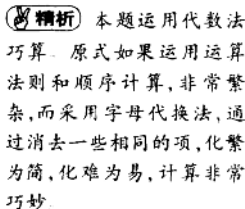 精析 本题运用代数法
巧算. 原式如果运用运算
法则和顺序计算,非常繁
杂,而采用字母代换法,通
过消去一些相同的项,化繁
为简,化难为易,计算非常
巧妙.